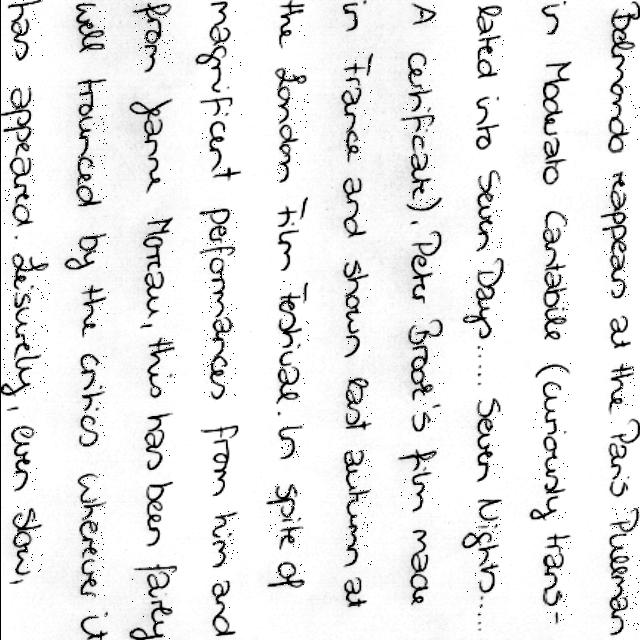 Belmondo reappears at the Paris Pullman
in Moderato Cantabile (curiously trans-
lated into Seven Days.... Seven Nights....
A certificate). Peter Brook's film made
in France and shown last autumn at
the London Film Festival. In spite of
magnificent performances from him and
from Jeanne Moreau, this has been fairly
well trounced by the critics wherever it
has appeared. Leisurely, even slow,